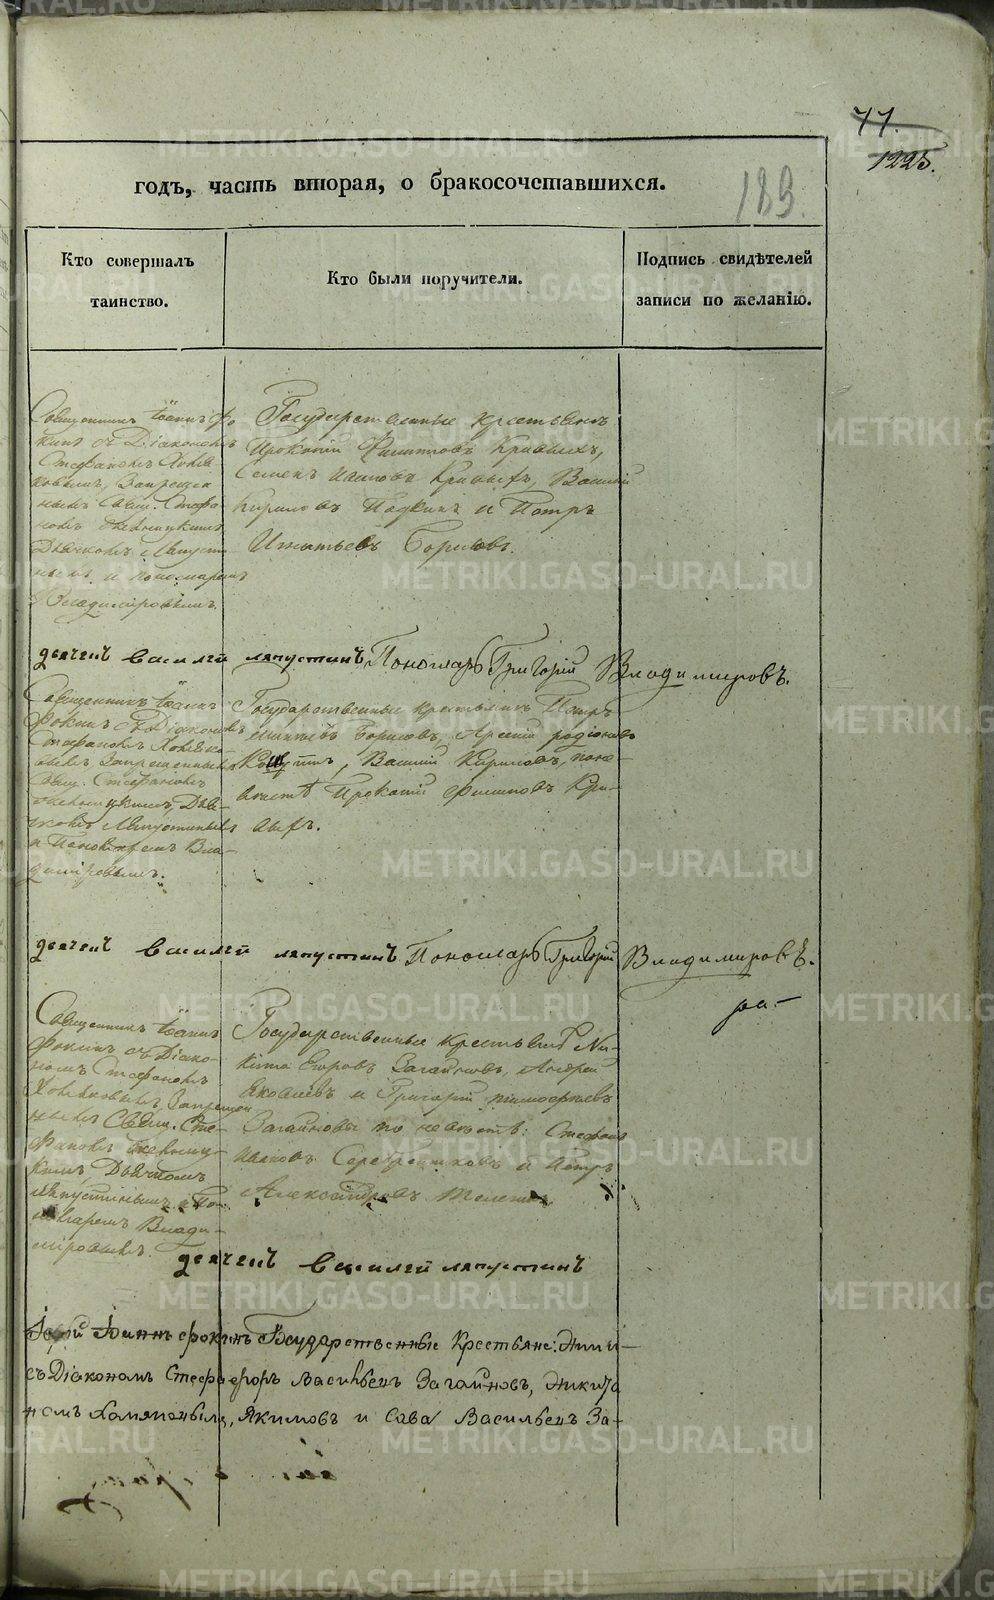 77.
1225.
189.
годъ, часть вторая, о бракосочетавшихся.
Кто совершалъ
таинство.
Кто были поручители.
Подпись свидѣтелей
записи по желанію.
Священникъ Іоаннъ Фо
кинъ съ Діакономъ
Стефаномъ Хомя
ковымъ, Запреще
нымъ Свящ. Стефа
номъ
Дьячкомъ Ляпусти
нымъ и пономаремъ
Владиміровымъ.
Государственные крестьяне
Прокопій Филиповъ Кривыхъ,
Семенъ Ивановъ Кривыхъ, Василій
Кириловъ и Петръ
Игнатьевъ Борисовъ.
дьячекъ василей ляпустинъ Пономарь Григорій Владимировъ.
Священникъ Іоаннъ
Фокинъ съ Діакономъ
Стефаномъ Хомяко-
вымъ, Запрещеннымъ
Свящ. Стефаномъ
Дья-
чкомъ Ляпустинымъ
и Пономаремъ Вла-
диміровымъ.
Государственные крестьяне Петръ
Борисовъ, Родіоновъ
Василій Кириловъ, поне-
вѣстѣ Прокопій Филиповъ Кри-
выхъ.
дьячекъ василей ляпустинъ Пономарь Григорій Владимировъ.
Священникъ Іоаннъ
Фокинъ съ Діако-
номъ Стефаномъ
Хомяковымъ, Запрещен
нымъ Свящ. Сте-
фаномъ
Дьячкомъ
Ляпустинымъ и По-
номаремъ Влади-
міровымъ.
Государственные крестьяне Ни-
кита Егоровъ Загайновъ, Андрей
Яковлевъ и Григорій Тимофеевъ
Загайновы по невѣстѣ: Стефанъ
Ивановъ Серебрениковъ и Петръ
Александровъ
дьячекъ василей ляпустинъ
Іерей Іоаннъ Фокинъ
съ Діакономъ Стефа
номъ Хомяковымъ,
Государственные Крестьяне: Ники-
форъ Васильевъ Загайновъ, Никита
Якимовъ и Сава Васильевъ За-
METRIKI.GASO-URAL.RU